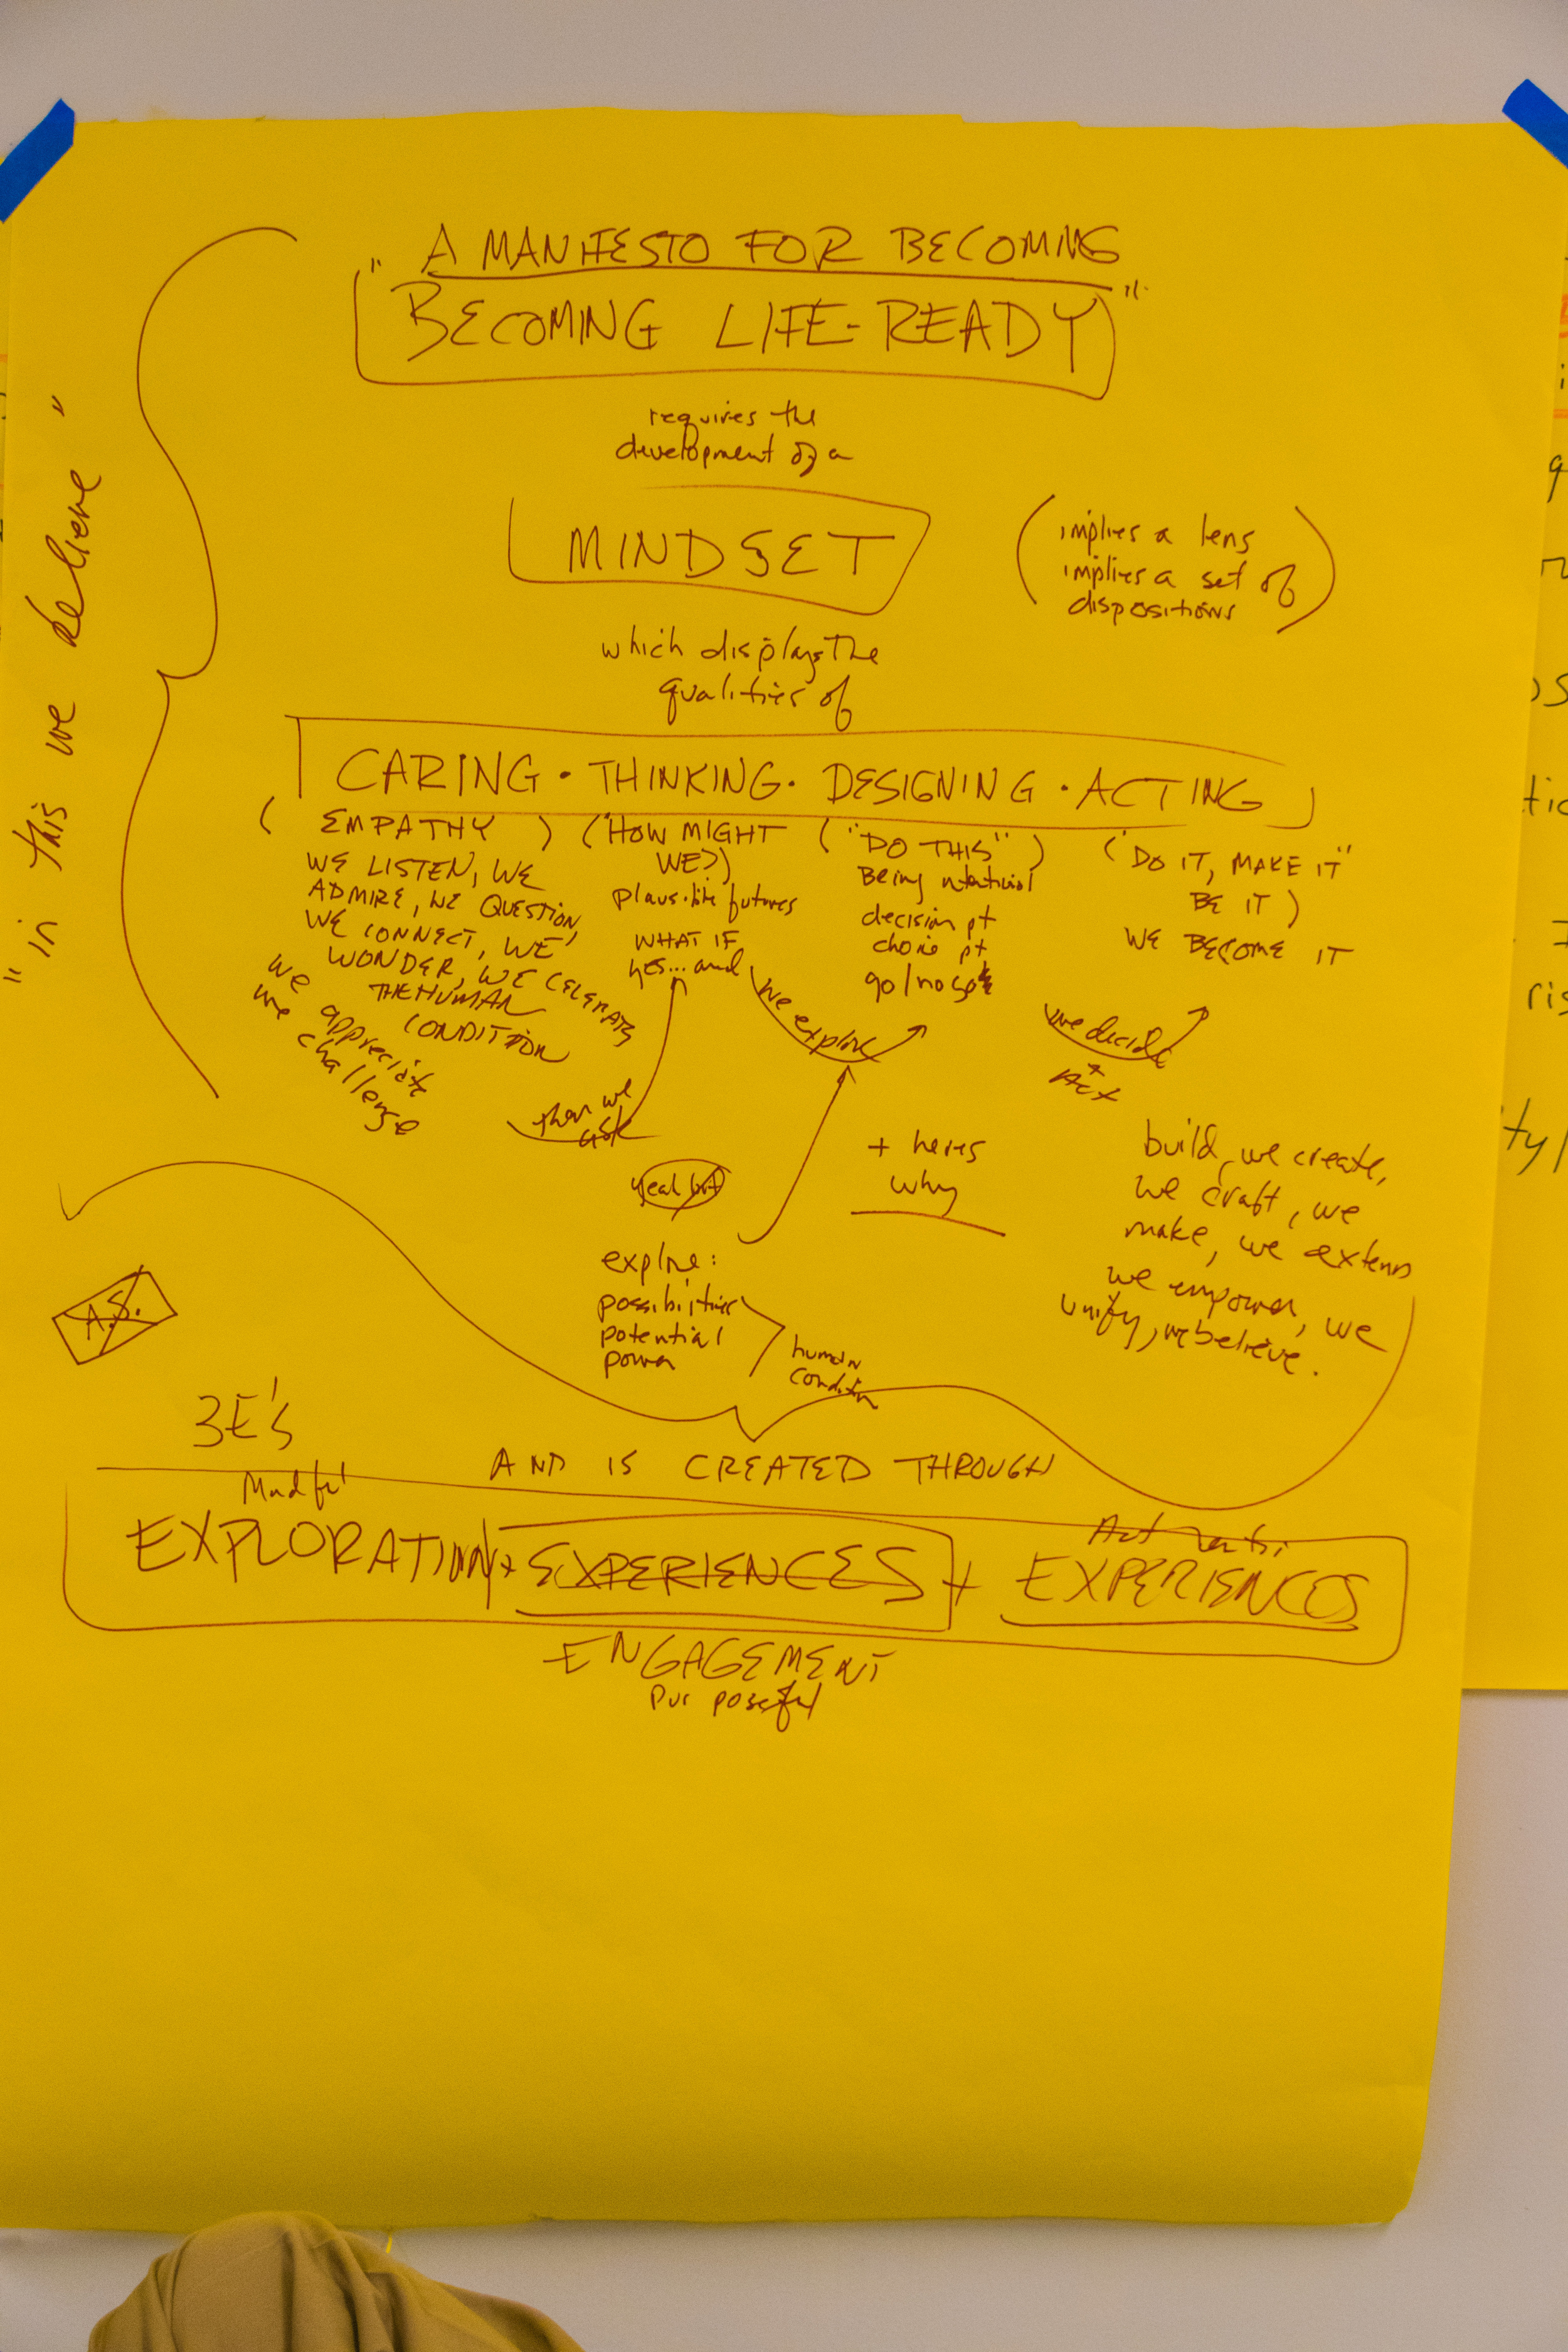 " A MANIFESTO FOR BECOMING
BECOMING LIFE-READY "
requires the
development of a
MINDSET
(implies a lens
implies a set of
dispositions)
which displays the
qualities of
"in this we believe"
CARING · THINKING · DESIGNING · ACTING
( EMPATHY )
WE LISTEN, WE
ADMIRE, WE QUESTION,
WE CONNECT, WE
WONDER, WE CELEBRATE
THE HUMAN
CONDITION
we appreciate
we challenge
then we
ask
("HOW MIGHT
WE?)
plausible futures
WHAT IF
yes... and
we explore
("DO THIS")
Being intentional
decision pt
choice pt
go/no go
we decide
+
Act
("DO IT, MAKE IT"
BE IT)
WE BECOME IT
yeah but
explore:
possibilities
potential
power
human
condition
+ heres
why
build, we create,
we craft, we
make, we extend
we empower, we
unify, we believe.
A.S.
3E's
AND IS CREATED THROUGH
Mindful
EXPLORATION + EXPERIENCES + EXPERIENCES
ENGAGEMENT
Purposeful